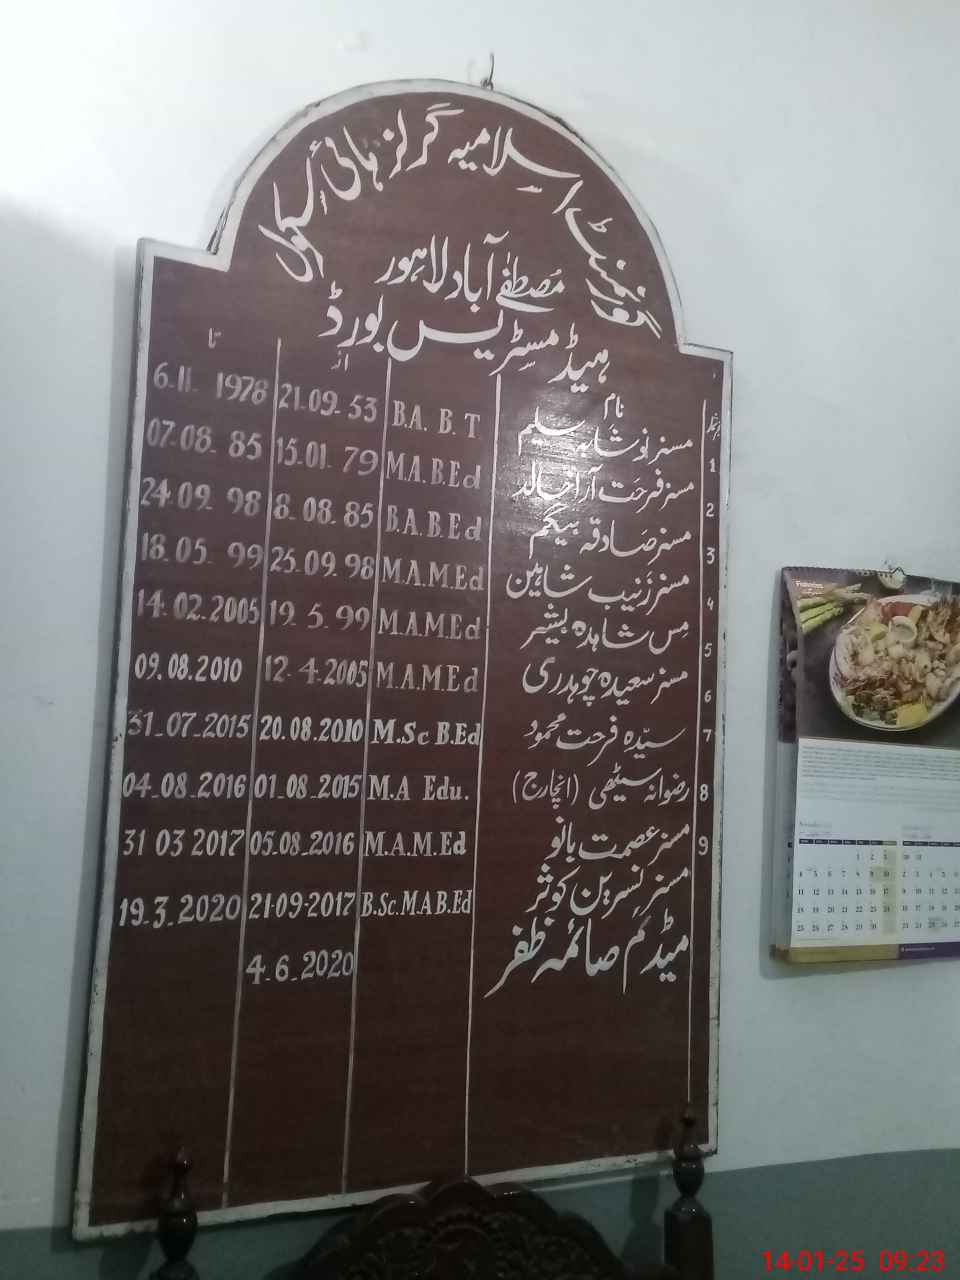 گورنمنٹ اسلامیہ گرلز ہائی سکول
مصطفےٰ آباد لاہور
ہیڈ مسٹریس بورڈ
نام از تا
1 مسز نوشابہ سلیم B.A. B.T 21-09-53 6-11-1978
2 مسز فرحت آرا خالد M.A. B.Ed 15-01-79 07-08-85
3 مسز صادقہ بیگم B.A. B.Ed 8-08-85 24-09-98
4 مسز زینب شاہین M.A.M.Ed 25.09.98 18.05.99
5 مس شاہدہ بشیر M.A.M.Ed 19.5.99 14.02.2005
6 مسز سعیدہ چوہدری M.A.M.Ed 12.4.2005 09.08.2010
7 سیدہ فرحت محمود M.Sc B.Ed 20.08.2010 31-07-2015
8 رضوانہ سیٹھی (انچارج) M.A Edu. 01-08-2015 04-08-2016
9 مسز عصمت بانو M.A.M.Ed 05-08-2016 31 03 2017
مسز نسرین کوثر B.Sc. M.A B.Ed 21-09-2017 19-3-2020
میڈم صائمہ ظفر 4-6-2020
14-01-25 09:23